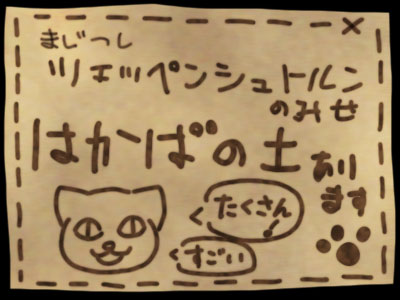 まじつし
ツェッペンシュトルン
のみせ
はかばの土
あり
ます
たくさん!
すごい